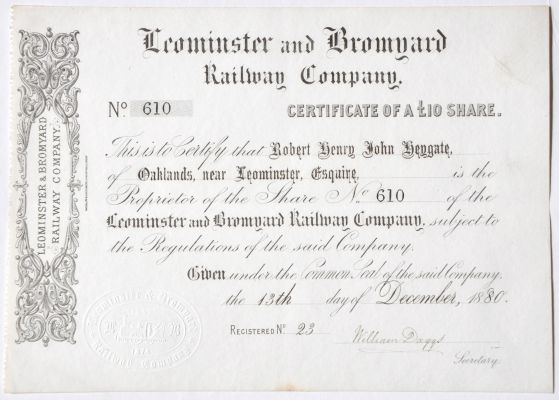 Leominster and Bromyard
Railway Company.
No 610
CERTIFICATE OF A £10 SHARE.
This is to Certify that Robert Henry John Heygate,
of Oaklands, near Leominster, Esquire, is the
Proprietor of the Share No 610 of the
Leominster and Bromyard Railway Company, subject to
the Regulations of the said Company.
Given under the Common Seal of the said Company,
the 13th day of December, 1880.
REGISTERED No 23
William Daggs
Secretary.
LEOMINSTER & BROMYARD
RAILWAY COMPANY.
Leominster & Bromyard
Railway Company
1874